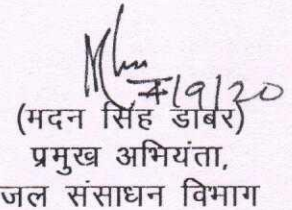 4/9/20
(मदन सिंह डाबर)
प्रमुख अभियंता,
जल संसाधन विभाग